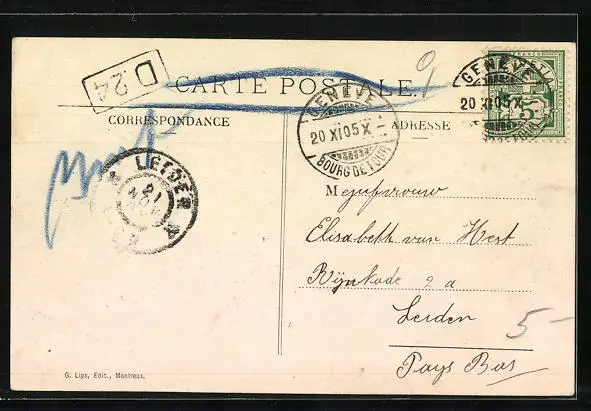 D.24
CARTE POSTALE.
CORRESPONDANCE
ADRESSE
GENÈVE
20 XI 05 X
BOURG DE FOUR
GENÈVE
20 XI 05 X
FRANCO
5
LEIDEN
21
NOV
Mejufvrouw
Elisabeth van Hest
Rijnkade 2a
Leiden
Pays Bas
5-
G. Lips, Edit., Montreux.